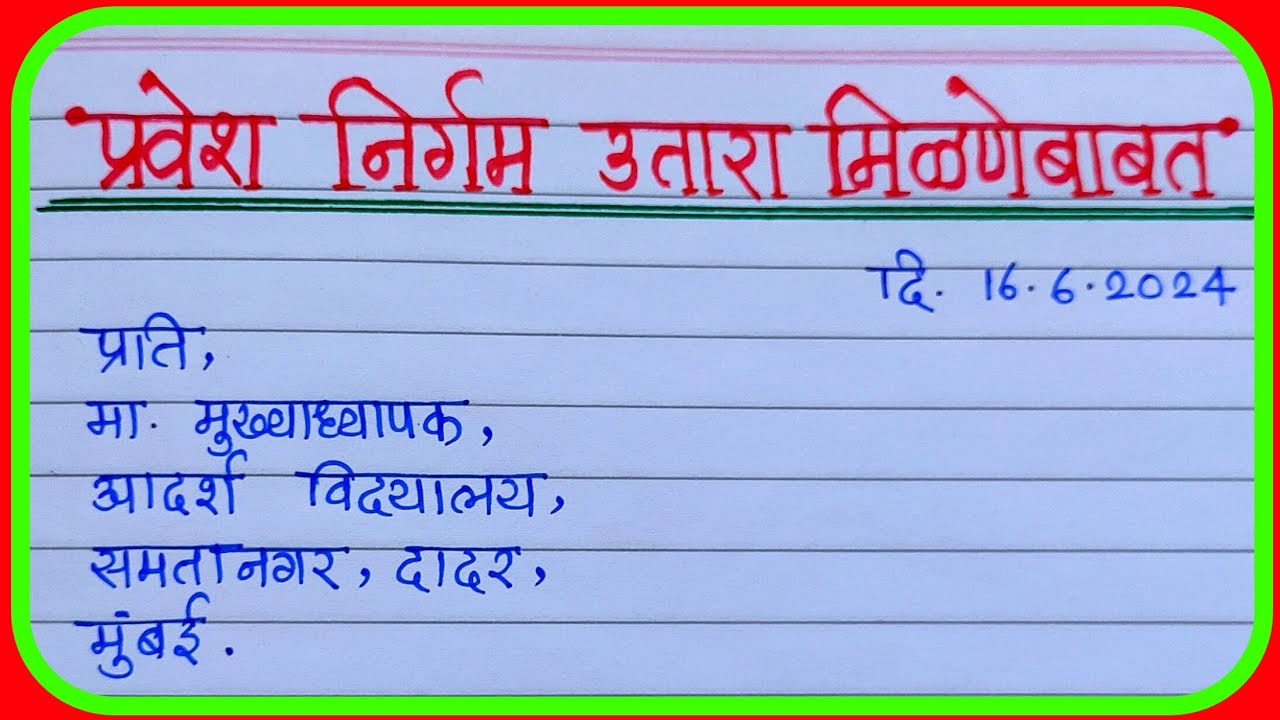 प्रवेश निर्गम उतारा मिळणेबाबत
दि. 16.6.2024
प्रति,
मा. मुख्याध्यापक,
आदर्श विद्यालय,
समतानगर, दादर,
मुंबई.